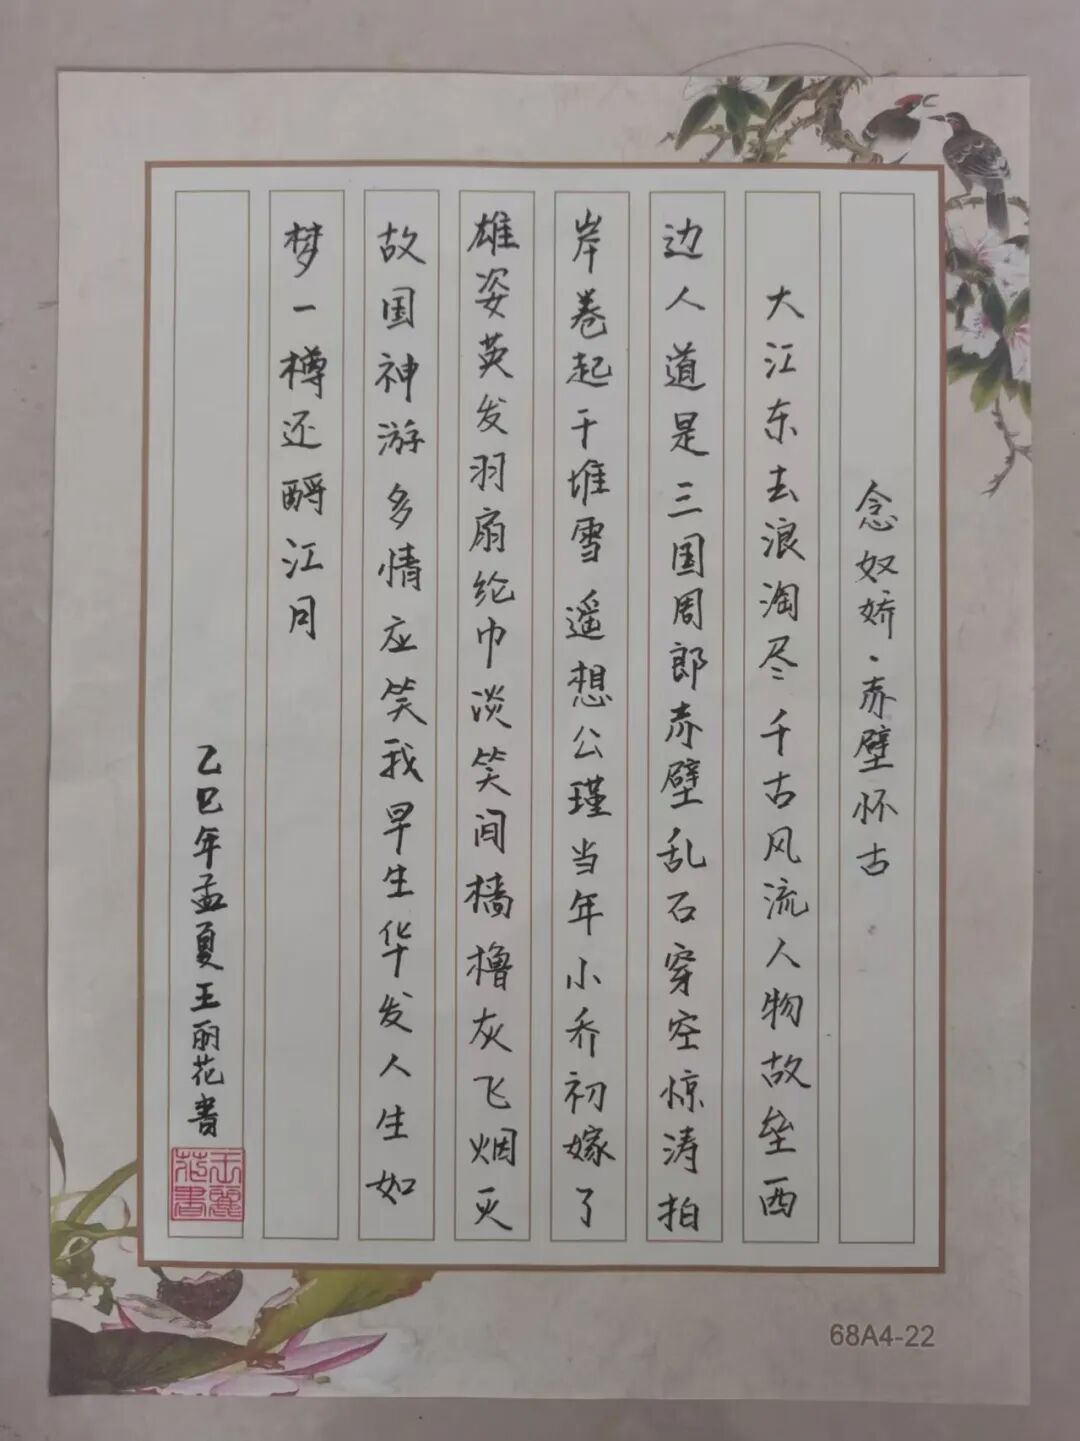 念奴娇·赤壁怀古
大江东去浪淘尽千古风流人物故垒西
边人道是三国周郎赤壁乱石穿空惊涛拍
岸卷起千堆雪遥想公瑾当年小乔初嫁了
雄姿英发羽扇纶巾淡笑间樯橹灰飞烟灭
故国神游多情应笑我早生华发人生如
梦一樽还酹江月
乙巳年孟夏王丽花书
王丽花书
68A4-22